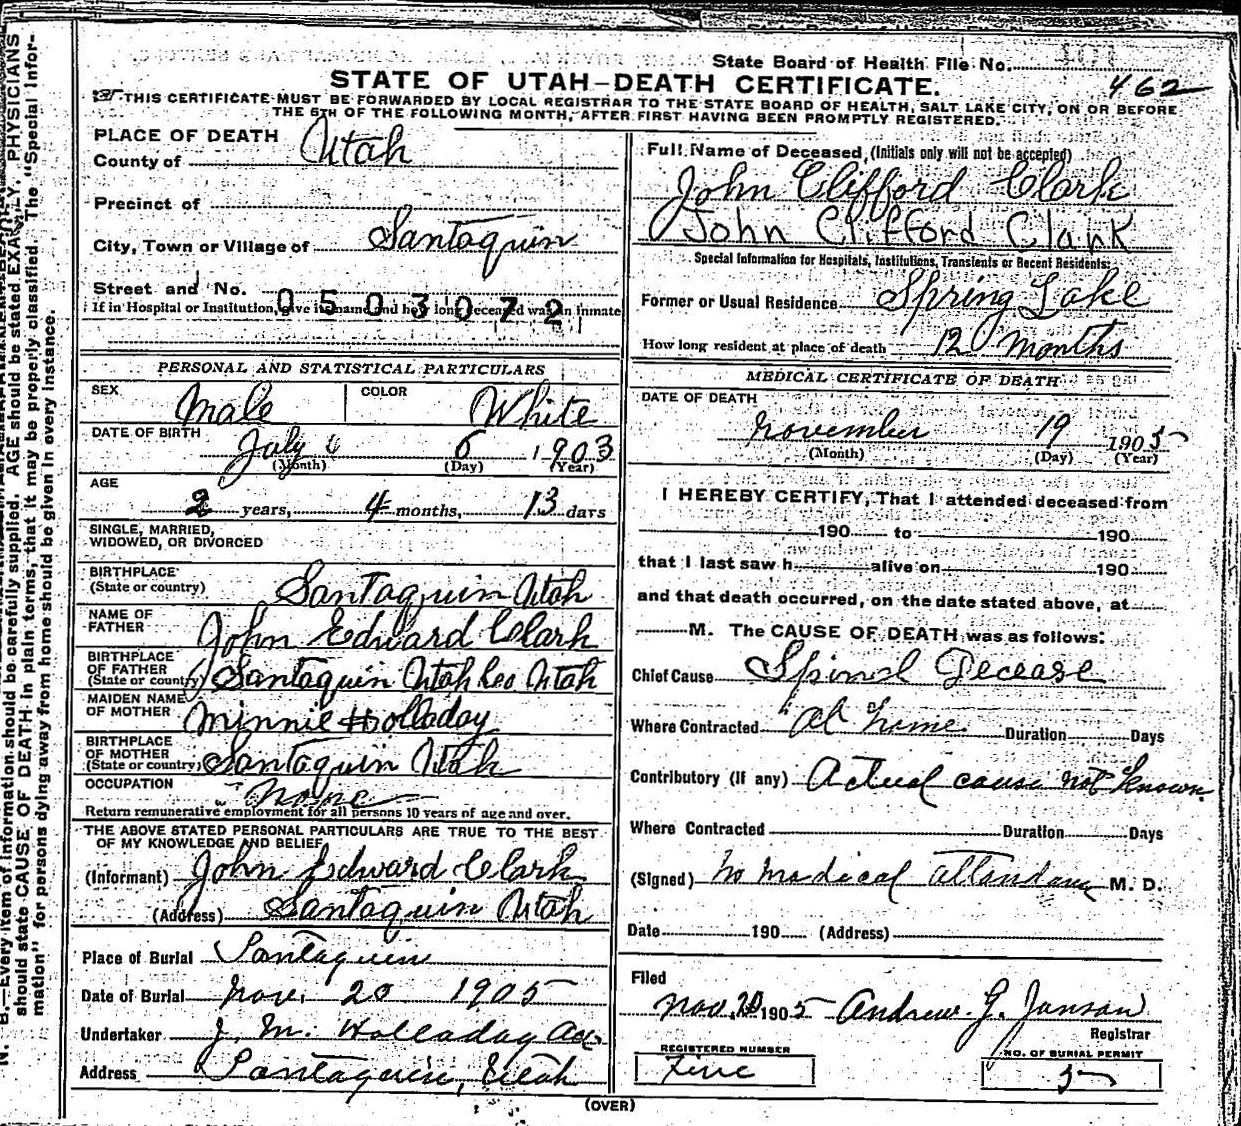 State Board of Health File No.
STATE OF UTAH—DEATH CERTIFICATE.
462
THIS CERTIFICATE MUST BE FORWARDED BY LOCAL REGISTRAR TO THE STATE BOARD OF HEALTH, SALT LAKE CITY, ON OR BEFORE
THE 5TH OF THE FOLLOWING MONTH, AFTER FIRST HAVING BEEN PROMPTLY REGISTERED.
PLACE OF DEATH
County of Utah
Precinct of
City, Town or Village of Santaquin
Street and No.
0503072
If in Hospital or Institution, give its name and how long deceased was an inmate
PERSONAL AND STATISTICAL PARTICULARS
SEX Male COLOR White
DATE OF BIRTH July 6 1903
(Month) (Day) (Year)
AGE
2 years, 4 months, 13 days
SINGLE, MARRIED,
WIDOWED, OR DIVORCED
BIRTHPLACE
(State or country) Santaquin Utah
NAME OF
FATHER John Edward Clark
BIRTHPLACE
OF FATHER
(State or country) Santaquin Utah Co Utah
MAIDEN NAME
OF MOTHER Minnie Holladay
BIRTHPLACE
OF MOTHER
(State or country) Santaquin Utah
OCCUPATION None
Return remunerative employment for all persons 10 years of age and over.
THE ABOVE STATED PERSONAL PARTICULARS ARE TRUE TO THE BEST
OF MY KNOWLEDGE AND BELIEF
(Informant) John Edward Clark
(Address) Santaquin Utah
Place of Burial Santaquin
Date of Burial Nov. 20 1905
Undertaker J. M. Holladay
Address Santaquin, Utah
Full Name of Deceased, (Initials only will not be accepted)
John Clifford Clark
John Clifford Clark
Special Information for Hospitals, Institutions, Transients or Recent Residents:
Former or Usual Residence Spring Lake
How long resident at place of death 12 months
MEDICAL CERTIFICATE OF DEATH
DATE OF DEATH
November 19 1905
(Month) (Day) (Year)
I HEREBY CERTIFY, That I attended deceased from
190 to 190
that I last saw h alive on 190
and that death occurred, on the date stated above, at
M. The CAUSE OF DEATH was as follows:
Chief Cause Spinal Decease
Where Contracted at home Duration Days
Contributory (If any) Actual cause not known
Where Contracted Duration Days
(Signed) No medical attendance M. D.
Date 190 (Address)
Filed
Nov. 20 1905 Andrew G. Janson
Registrar
REGISTERED NUMBER
Five
NO. OF BURIAL PERMIT
5
(OVER)
N. B.—Every item of information should be carefully supplied. AGE should be stated EXACTLY. PHYSICIANS
should state CAUSE OF DEATH in plain terms, that it may be properly classified. The "Special Infor-
mation" for persons dying away from home should be given in every instance.